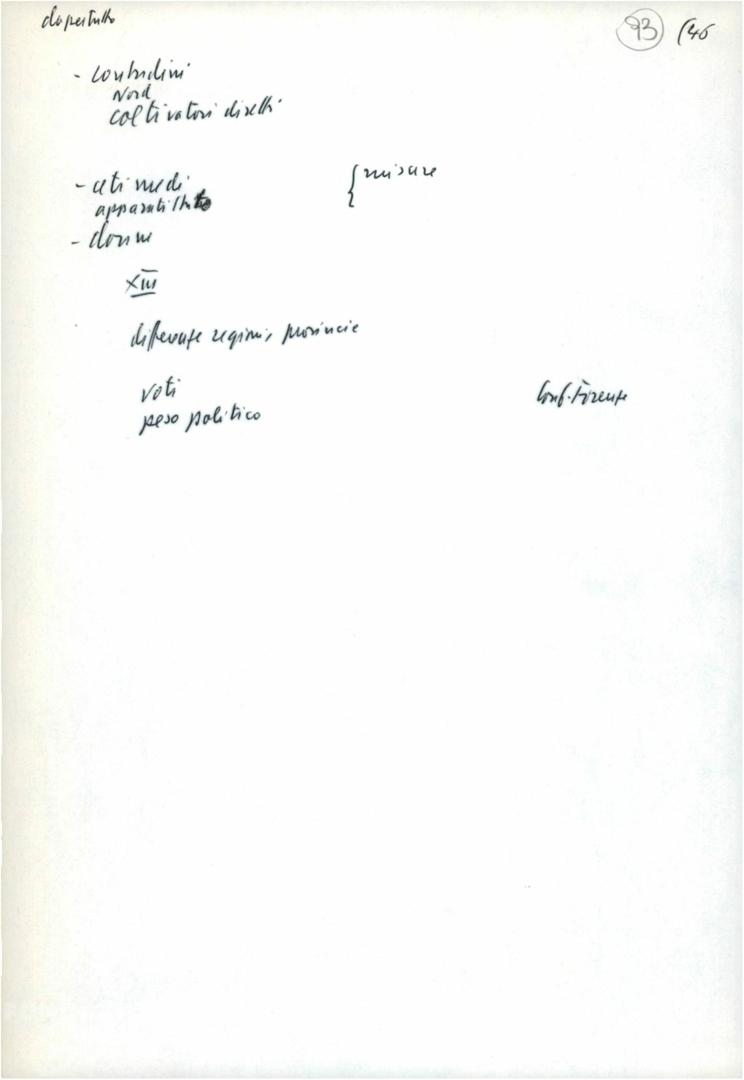 dapertutto
93 (46
- contadini
Nord
coltivatori diretti
- ceti medi { misure
apparati Stato
- donne
XIII
differenze regioni, provincie
voti Conf. Firenze
peso politico